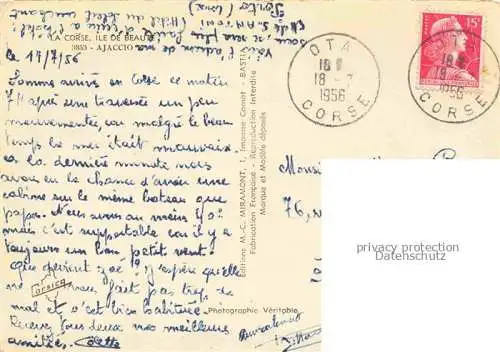 LA CORSE, ILE DE BEAUTÉ
3853 - AJACCIO
Voici l'adresse de ma
Porto (Corse)
le 17/7/56
Sommes arrivés en Corse ce matin
7h après une traversée un peu
mouvementée, car malgré le beau
temps la mer était mauvaise.
A la dernière minute nous
avons eu la chance d'avoir une
cabine sur le même bateau que
papa. Nous avons au moins 40°
mais c'est supportable car il y a
toujours un bon petit vent.
Que devient Zoé ? J'espère qu'elle
ne vous fait pas trop de
mal et s'est bien habituée.
Recevez tous deux nos meilleures
amitiés. Colette
Corsica
Editions M.-C. MIRAMONT, 1, Impasse Carnot - BASTIA
Fabrication Française - Reproduction Interdite
Marque et Modèle déposés
Photographie Véritable
OTA
18 - 7
1956
CORSE
15F
18
1956
CORSE
Monsieur
76,
privacy protection
Datenschutz